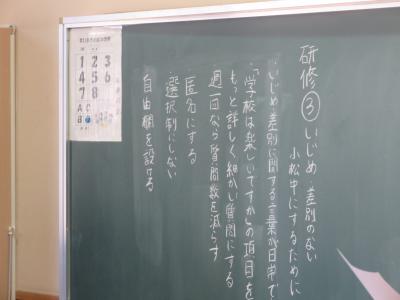 研修③いじめ、差別のない
小松中にするために
・いじめ、差別に関する言葉が日常で
・「学校は楽しいですか」の項目を
もっと詳しく細かい質問にする
週一回なら質問数を減らす
匿名にする
選択制にしない
自由欄を設ける
1 2 3
4 5 6
7 8
A C
B